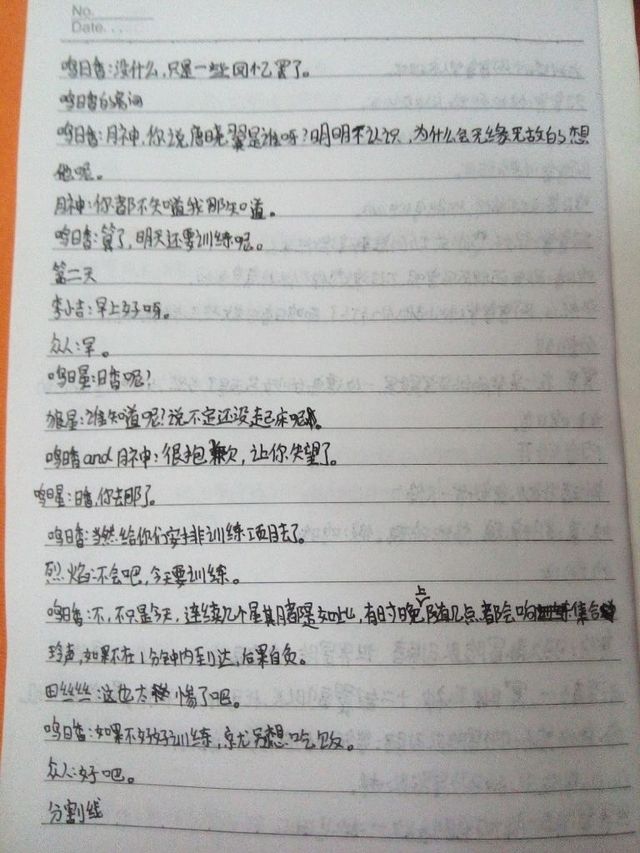 No.
Date.
鸣日香:没什么,只是一些回忆罢了。
鸣日香的房间
鸣日香:月神,你说唐晓翼是谁呀?明明不认识,为什么会无缘无故的想
他呢。
月神:你都不知道我那知道。
鸣日香:算了,明天还要训练呢。
第二天
李小吉:早上好呀。
众人:早。
鸣日星:日香呢?
狼星:谁知道呢!说不定还没起床呢。
鸣日香and月神:很抱歉,让你失望了。
鸣日星:日香,你去那了。
鸣日香:当然给你们安排训练项目去了。
烈焰:不会吧,今天要训练。
鸣日香:不,不只是今天,连续几个星其月都是如此,有时晚上随几点都会响集合
玲声,如果不在1分钟内到达,后果自负。
田丝丝:这也太惨了吧。
鸣日香:如果不好好训练,就别想吃饭。
众人:好吧。
分割线